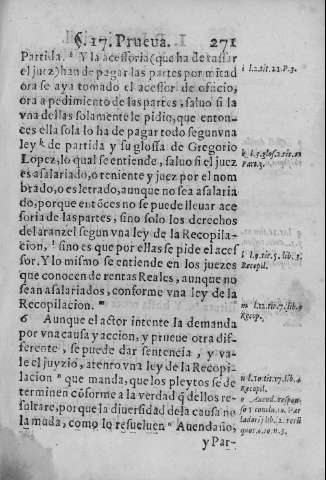 §. 17. Prueva. 271
Partida. i Y la acessoria (que ha de tassar
el juez) han de pagar las partes por mitad
ora se aya tomado el acessor de oficio,
ora a pedimiento de las partes, saluo si la
vna dellas solamente le pidio, que enton-
ces ella sola lo ha de pagar todo segun vna
ley k de partida y su glossa de Gregorio
Lopez, lo qual se entiende, saluo si el juez
es asalariado, o teniente y juez por el nom
brado, o es letrado, aunque no sea asalaria
do, porque entõces no se puede lleuar ace
soria de las partes, sino solo los derechos
del aranzel segun vna ley de la Recopila-
cion, l sino es que por ellas se pide el aces
sor. Y lo mismo se entiende en los juezes
que conocen de rentas Reales, aunque no
sean asalariados, conforme vna ley de la
Recopilacion. m
6 Aunque el actor intente la demanda
por vna causa y accion, y prueue otra dif-
ferente, se puede dar sentencia, y va-
le el juyzio, atento vna ley de la Recopi-
lacion n que manda, que los pleytos se de
terminen cõforme a la verdad q̃ dellos re-
sultare, porque la diuersidad de la causa no
la muda, como lo resueluen o Auendaño,
y Par-
i l.2.tit.21.P.3.
k l.3.glos.2.tit.21
Part.3.
l l.9.tit.5. lib.3.
Recopil.
m l.12.tit.7. lib.9
Recop.
n l.10.tit.17.lib.4
Recopil.
o Auend. respon-